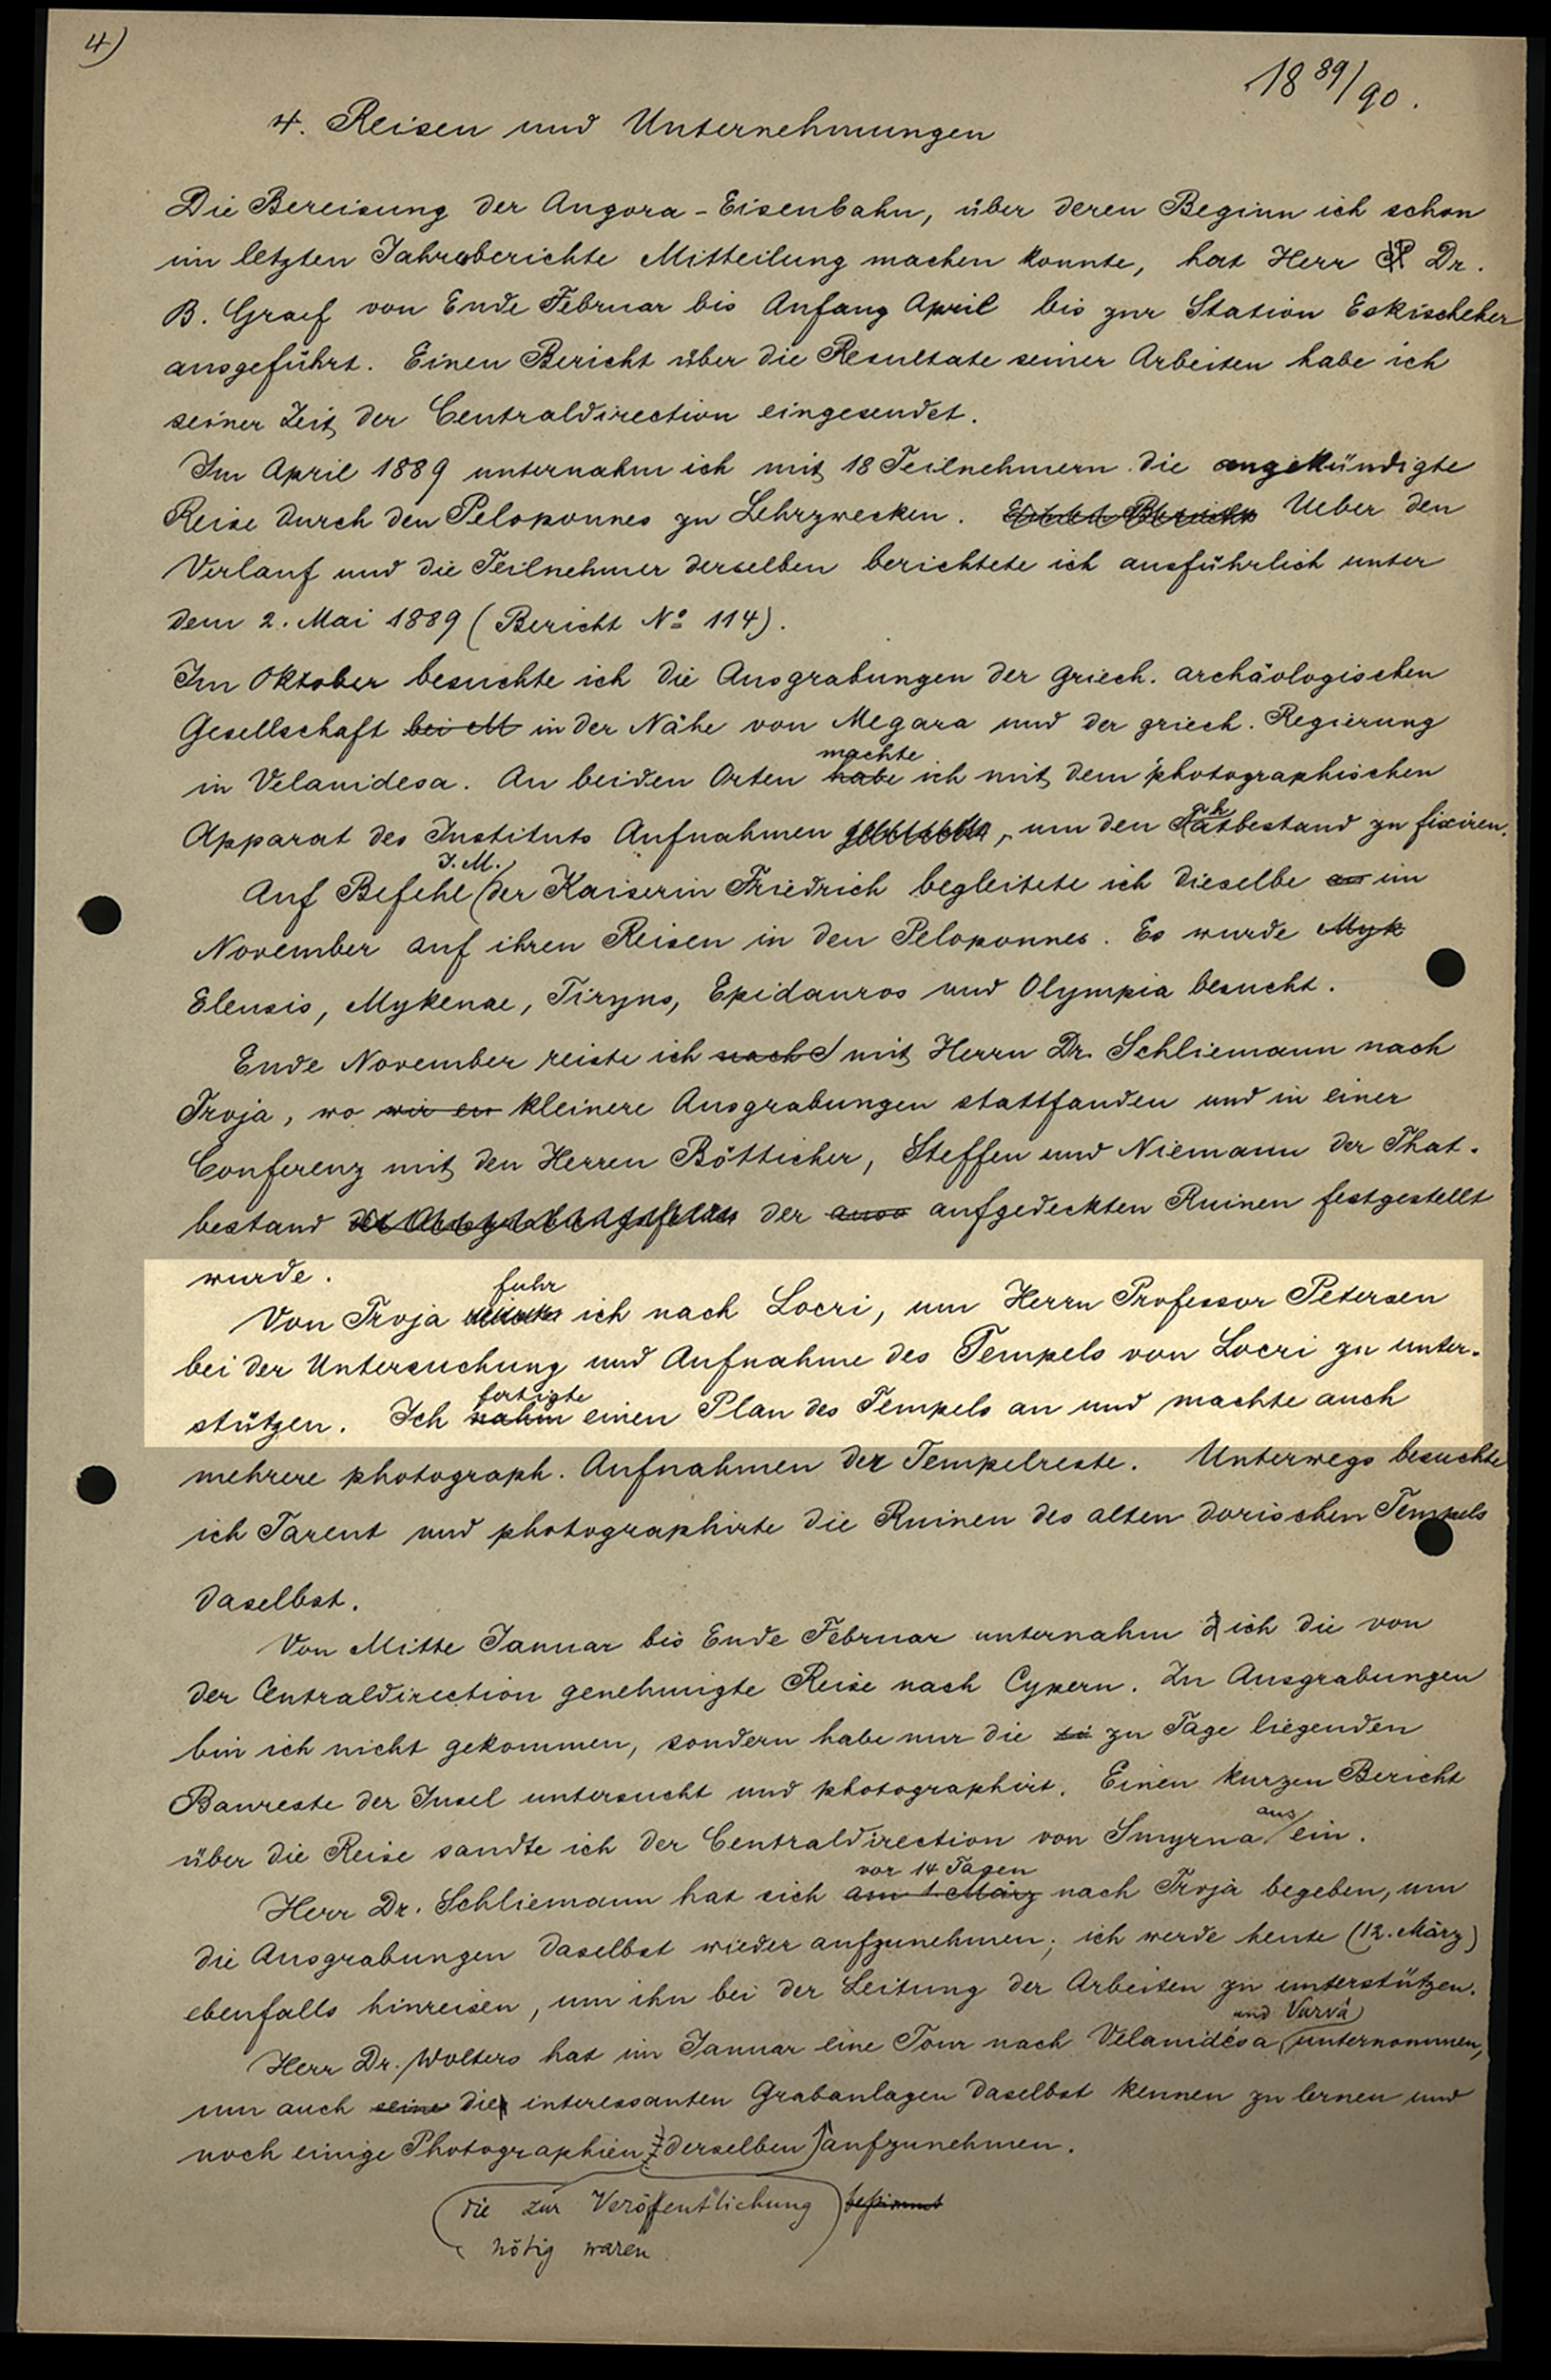 4)
18 89/90.
4. Reisen und Unternehmungen
Die Bereisung der Angora-Eisenbahn, über deren Beginn ich schon
im letzten Jahresberichte Mitteilung machen konnte, hat Herr Dr.
B. Graef von Ende Februar bis Anfang April bis zur Station Eskischeher
ausgeführt. Einen Bericht über die Resultate seiner Arbeiten habe ich
seiner Zeit der Centraldirection eingesendet.
Im April 1889 unternahm ich mit 18 Teilnehmern die angekündigte
Reise durch den Peloponnes zu Lehrzwecken. Ueber den
Verlauf und die Teilnehmer derselben berichtete ich ausführlich unter
dem 2. Mai 1889 (Bericht Nº 114).
Im Oktober besuchte ich die Ausgrabungen der griech. archäologischen
Gesellschaft bei M in der Nähe von Megara und der griech. Regierung
machte
in Velanidesa. An beiden Orten habe ich mit dem photographischen
Apparat des Instituts Aufnahmen, um den Thatbestand zu fixiren.
I. M.
Auf Befehl der Kaiserin Friedrich begleitete ich dieselbe an im
November auf ihren Reisen in den Peloponnes. Es wurde Myk
Eleusis, Mykenae, Tiryns, Epidauros und Olympia besucht.
Ende November reiste ich nach mit Herrn Dr. Schliemann nach
Troja, wo wir en kleinere Ausgrabungen stattfanden und in einer
Conferenz mit den Herren Bötticher, Steffen und Niemann der That-
bestand der ausg aufgedeckten Ruinen festgestellt
wurde.
fuhr
Von Troja ich nach Locri, um Herrn Professor Petersen
bei der Untersuchung und Aufnahme des Tempels von Locri zu unter-
fertigte
stützen. Ich nahm einen Plan des Tempels an und machte auch
mehrere photograph. Aufnahmen der Tempelreste. Unterwegs besuchte
ich Tarent und photographirte die Ruinen des alten dorischen Tempels
daselbst.
Von Mitte Januar bis Ende Februar unternahm ich die von
der Centraldirection genehmigte Reise nach Cypern. Zu Ausgrabungen
bin ich nicht gekommen, sondern habe nur die zu Tage liegenden
Baureste der Insel untersucht und photographirt. Einen kurzen Bericht
aus
über die Reise sandte ich der Centraldirection von Smyrna ein.
vor 14 Tagen
Herr Dr. Schliemann hat sich am 1. März nach Troja begeben, um
die Ausgrabungen daselbst wieder aufzunehmen; ich werde heute (12. März)
ebenfalls hinreisen, um ihn bei der Leitung der Arbeiten zu unterstützen.
und Vurvà
Herr Dr. Wolters hat im Januar eine Tour nach Velanidésa unternommen,
um auch seine die interessanten Grabanlagen daselbst kennen zu lernen und
noch einige Photographien derselben aufzunehmen.
die zur Veröffentlichung bestimmt
nötig waren